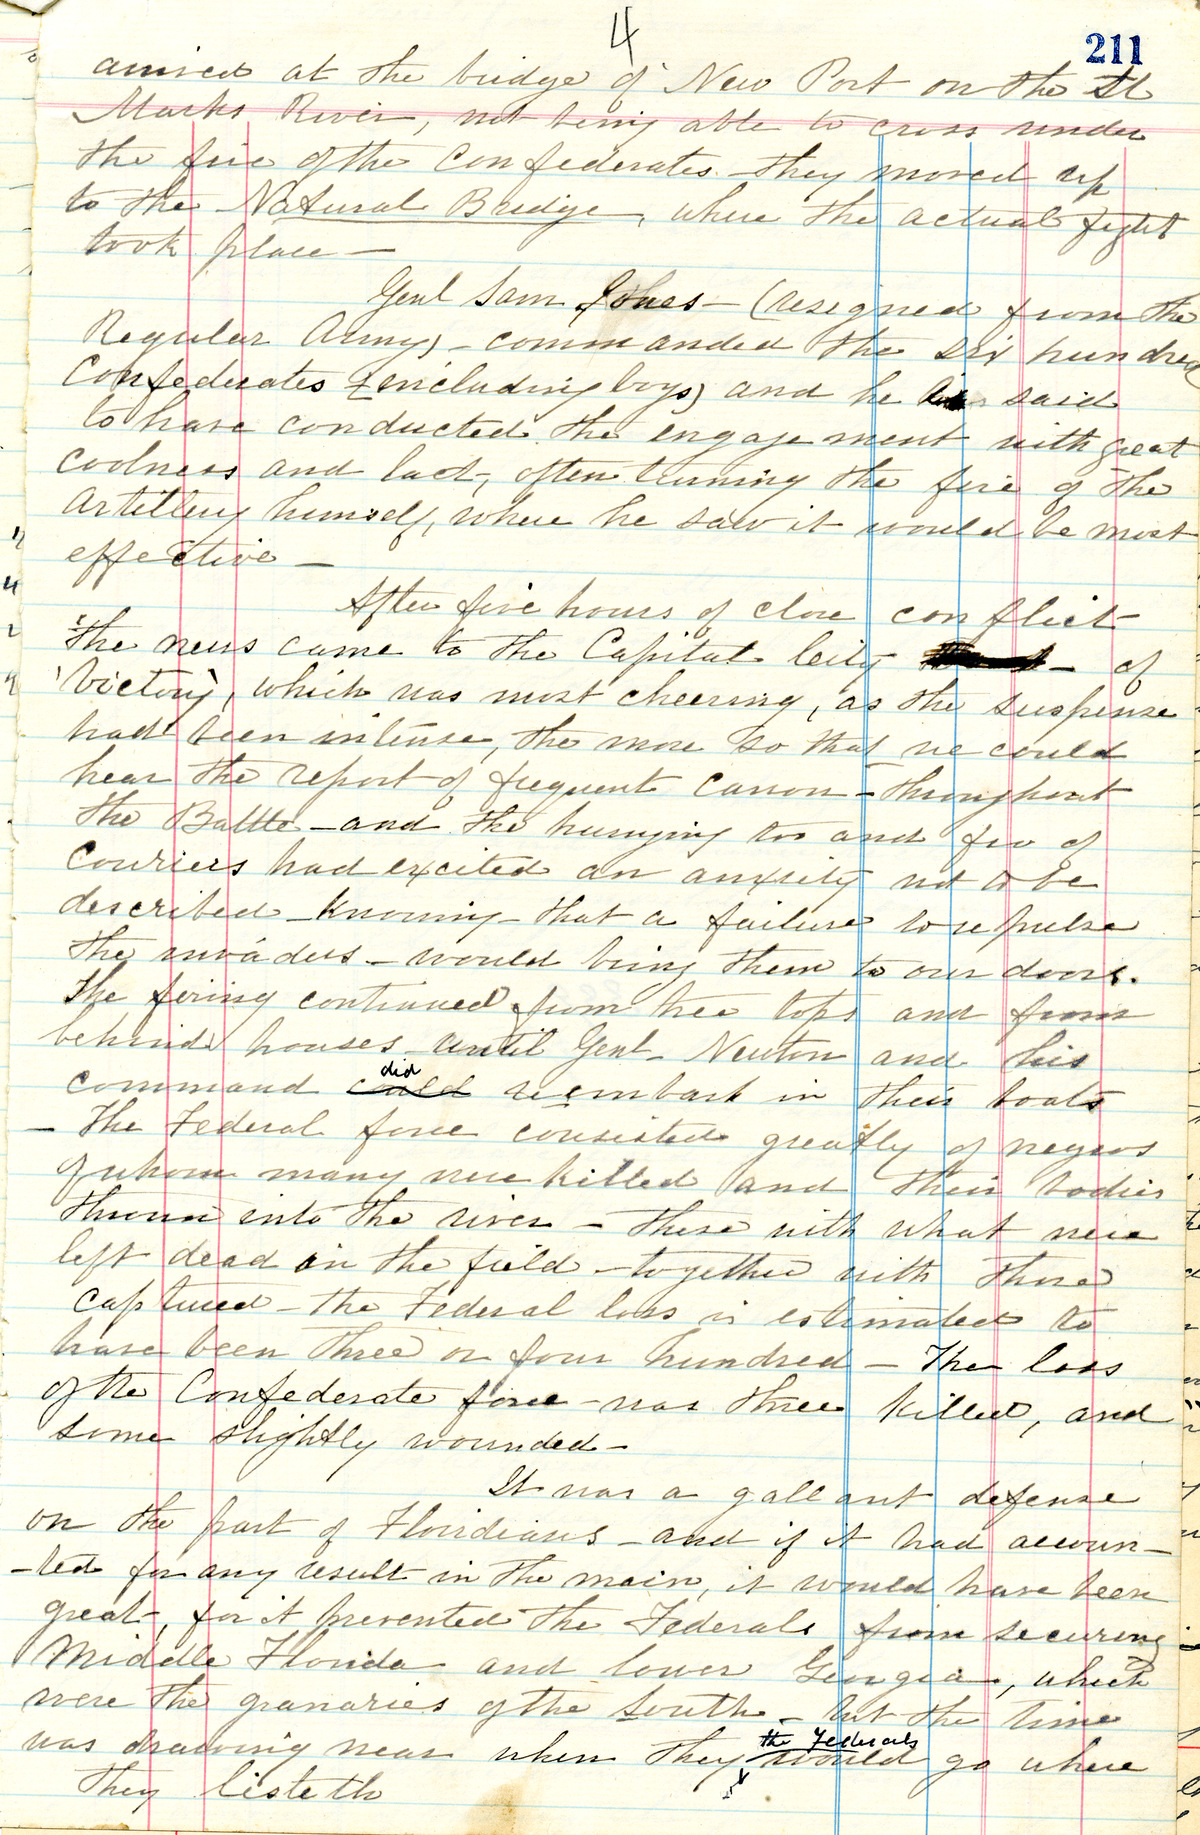 4
211
arrived at the bridge of New Port on the St
Marks River, not being able to cross under
the fire of the Confederates they moved up
to the Natural Bridge, where the actual fight
took place —
Genl Sam Jones – (resigned from the
Regular Army) – commanded the six hundred
Confederates (including boys) and he is said
to have conducted the engagement with great
coolness and tact, often turning the fire of the
Artillery himself, where he saw it would be most
effective —
After five hours of close conflict
the news came to the Capital City – of
'Victory', which was most cheering, as the suspense
had been intense, the more so that we could
hear the report of frequent Cannon – throughout
the Battle – and the hurrying too and fro of
Couriers had excited an anxiety not to be
described – Knowing – that a failure to repulse
the invaders – would bring them to our doors.
The firing continued from tree tops and from
behind houses until Genl Newton and his
did
command could reembark in their boats
– The Federal force consisted greatly of negros
of whom many were killed and their bodies
thrown into the river – these with what were
left dead in the field – together with those
captured – the Federal loss is estimated to
have been three or four hundred – The loss
of the Confederate force – was three killed, and
some slightly wounded –
It was a gallant defense
on the part of Floridians – and if it had accoun–
–ted for any result in the main, it would have been
great, for it prevented the Federals from securing
Middle Florida and lower Georgia, which
were the granaries of the South – but the time
the Federals
was drawing near when they would go where
they listeth